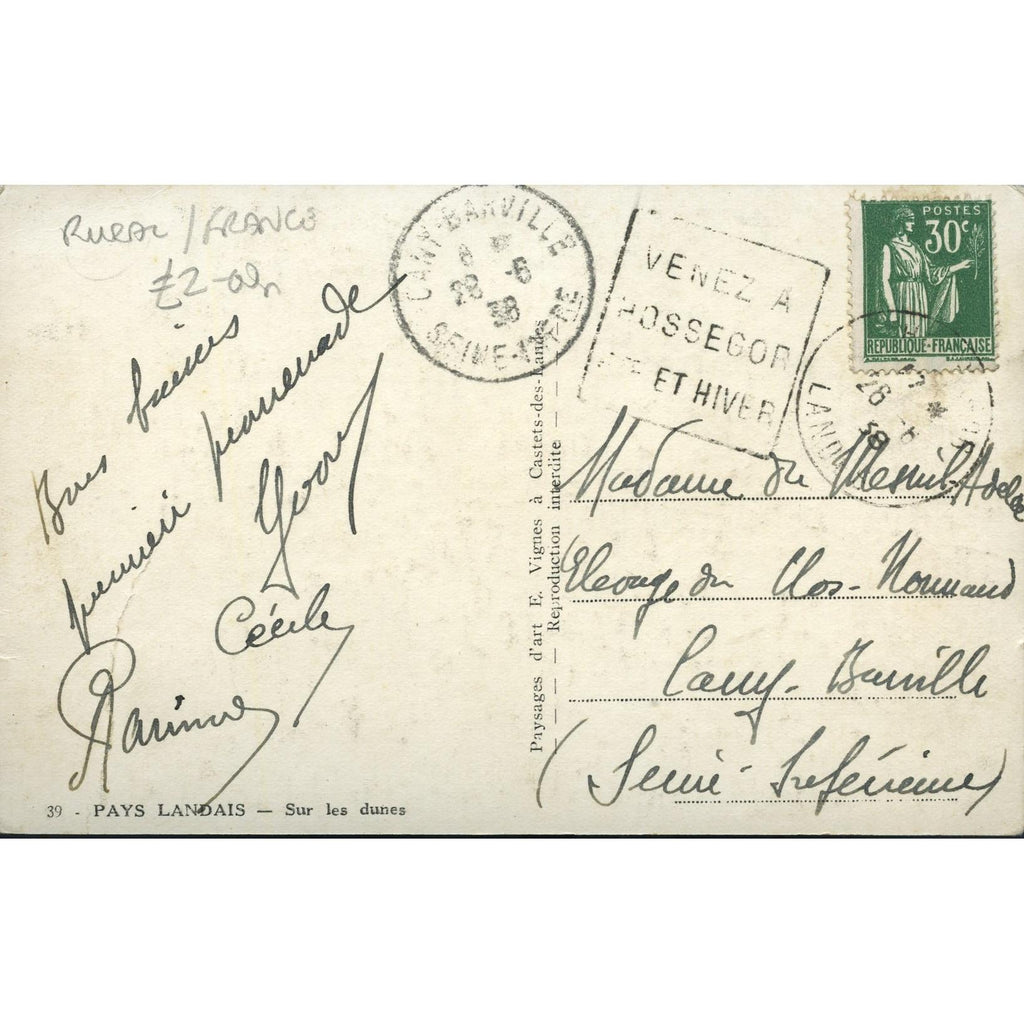 RURAL / FRANCE
£2-00
Bons baisers
premier promenade
Yvon
Cécile
39 - PAYS LANDAIS — Sur les dunes
CANY-BARVILLE
28 -6
38
SEINE-INFRE
Paysages d'art E. Vignes à Castets-des-Landes
— Reproduction interdite —
VENEZ A
HOSSEGOR
ET HIVER
POSTES
30c
REPUBLIQUE-FRANÇAISE
26
38
LANDES
Madame du Mesnil-Adelée
Elevage du Clos-Normand
Cany-Barville
(Seine-Inférieure)